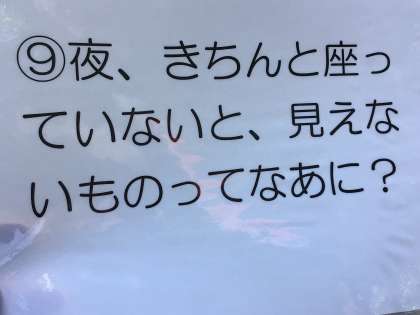 ⑨夜、きちんと座っ
ていないと、見えな
いものってなあに？